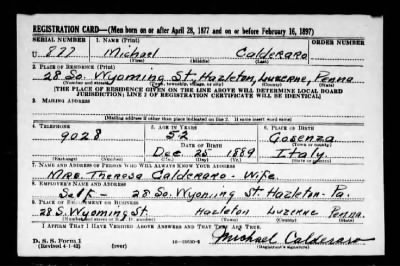 REGISTRATION CARD—(Men born on or after April 28, 1877 and on or before February 16, 1897)
SERIAL NUMBER 1. NAME (Print) ORDER NUMBER
U 877 Michael Calderaro
(First) (Middle) (Last)
2. PLACE OF RESIDENCE (Print)
28 So. Wyoming St. Hazleton, Luzerne, Penna
(Number and street) (Town, township, village, or city) (County) (State)
[THE PLACE OF RESIDENCE GIVEN ON THE LINE ABOVE WILL DETERMINE LOCAL BOARD
JURISDICTION; LINE 2 OF REGISTRATION CERTIFICATE WILL BE IDENTICAL]
3. MAILING ADDRESS
[Mailing address if other than place indicated on line 2. If same insert word same]
4. TELEPHONE 5. AGE IN YEARS 6. PLACE OF BIRTH
9028 52 Cosenza
DATE OF BIRTH (Town or county)
Dec. 25 1889 Italy.
(Exchange) (Number) (Mo.) (Day) (Yr.) (State or country)
7. NAME AND ADDRESS OF PERSON WHO WILL ALWAYS KNOW YOUR ADDRESS
Mrs. Theresa Calderaro - Wife.
8. EMPLOYER'S NAME AND ADDRESS
Self - 28 So. Wyoming St. Hazleton - Pa.
9. PLACE OF EMPLOYMENT OR BUSINESS
28 S. Wyoming St. Hazleton Luzerne Penna.
(Number and street or R. F. D. number) (Town) (County) (State)
I AFFIRM THAT I HAVE VERIFIED ABOVE ANSWERS AND THAT THEY ARE TRUE.
D. S. S. Form 1 Michael Calderaro
(Revised 4-1-42) (over) (Registrant's signature)